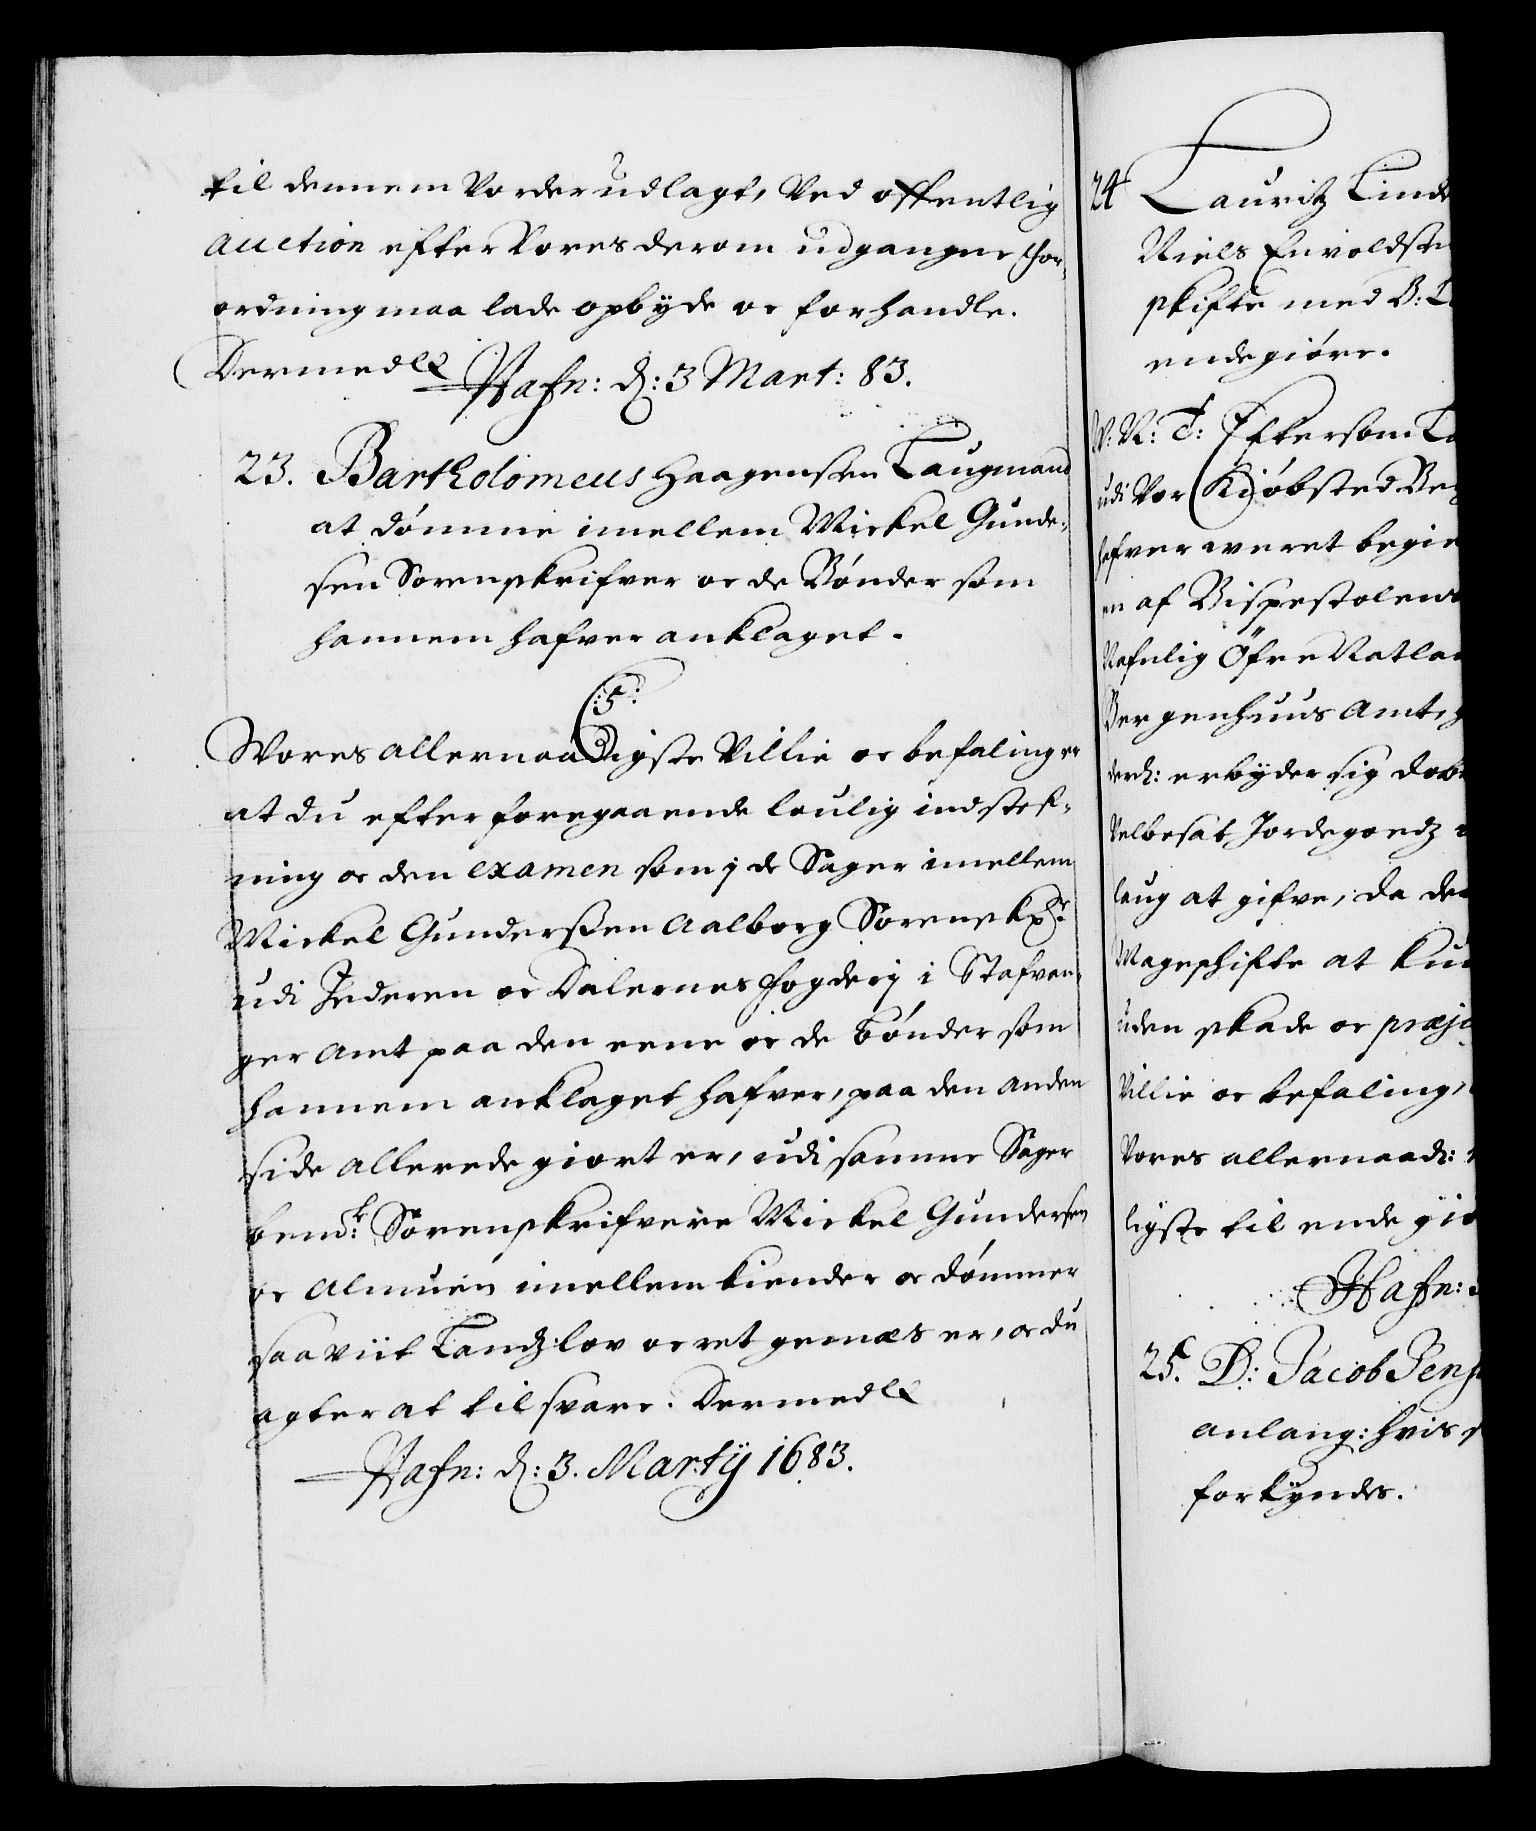 til dennem vorder udlagt, ved offentlig
auction efter Vores derom udgangne For,
ordning maa lade opbyde oc forhandle.
Dermed
Hafn: d: 3 Mart: 83.
23. Bartholomeus Haagensen Laugmand
at dömme imellem Mickel Gunder,
sen Sorenskrifver oc de Bönder som
hannem hafver anklaget.
:5:
Vores allernaadigste Villie oc befaling er
at du efter foregaaende loulig indstef,
ning oc den examen som j de Sager imellem
Mickel Gunderssen Aalborg Sorenskr:
udi Jederen oc Dalernes Fogderj i Stafvan,
ger Amt paa den eene oc de bönder som
hannem anklaget hafver, paa den anden
side allerede giort er, udi samme Sager
bemt: Sorenskrifvere Mickel Gundersen
oc Almuen imellem kiender oc dömmer
saaviit Landzlov oc ret gemæs er, oc du
agter at til svare. Dermed
Hafn: d: 3. Martij 1683.
24 Lauritz Linde
Niels Envoldse
skifte med B:
ende giöre.
V: N: T: Eftersom La
udi Vor Kiöbsted Ber
hafver været begie
en af Bispestolens
Nafnlig Öfre Natlan
Bergenhuus Amt,
derh: erbyder sig dob
velbesat Jordegoedz
laug at gifve, da de
Mageskifte at kun
uden skade oc præju
Villie oc befaling,
Vores allernaadi:
ligste til ende gi
Hafn:
25. D: Jacob Jens
anlang: hvis
forkyndes.